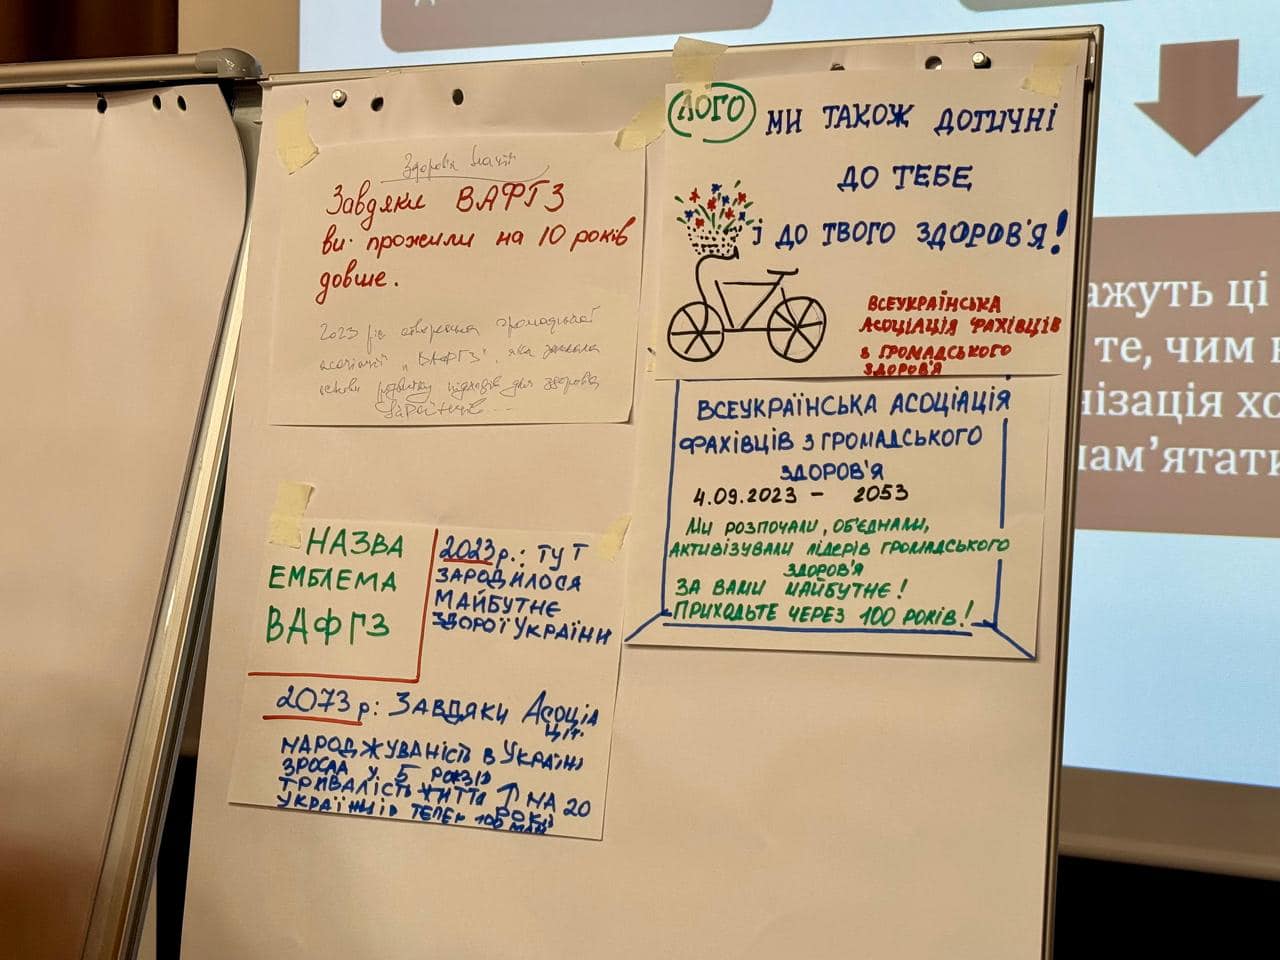 Здоров'я нації
Завдяки ВАФГЗ
ви прожили на 10 років
довше.
2023 рік створення громадської
асоціації "ВАФГЗ", яка заклала
основи розвитку підходів для здоров'я
ЛОГО
МИ ТАКОЖ ДОТИЧНІ
ДО ТЕБЕ
І ДО ТВОГО ЗДОРОВ'Я!
ВСЕУКРАЇНСЬКА
АСОЦІАЦІЯ ФАХІВЦІВ
З ГРОМАДСЬКОГО
ЗДОРОВ'Я
ВСЕУКРАЇНСЬКА АСОЦІАЦІЯ
ФАХІВЦІВ З ГРОМАДСЬКОГО
ЗДОРОВ'Я
4.09.2023 - 2053
МИ РОЗПОЧАЛИ, ОБ'ЄДНАЛИ,
АКТИВІЗУВАЛИ ЛІДЕРІВ ГРОМАДСЬКОГО
ЗДОРОВ'Я
ЗА ВАМИ МАЙБУТНЄ!
ПРИХОДЬТЕ ЧЕРЕЗ 100 РОКІВ!
НАЗВА
ЕМБЛЕМА
ВАФГЗ
2023 р.: ТУТ
ЗАРОДИЛОСЯ
МАЙБУТНЄ
ЗДОРОЇ УКРАЇНИ
2073 р: ЗАВДЯКИ АСОЦІА
ЦІЇ
НАРОДЖУВАНІСТЬ В УКРАЇНІ
ЗРОСЛА У 5 РАЗІВ
ТРИВАЛІСТЬ ЖИТТЯ ↑ НА 20
РОКІВ
УКРАЇНЦІВ ТЕПЕР 100 МЛН
ажуть ці
те, чим
нізація хо
пам'ятати